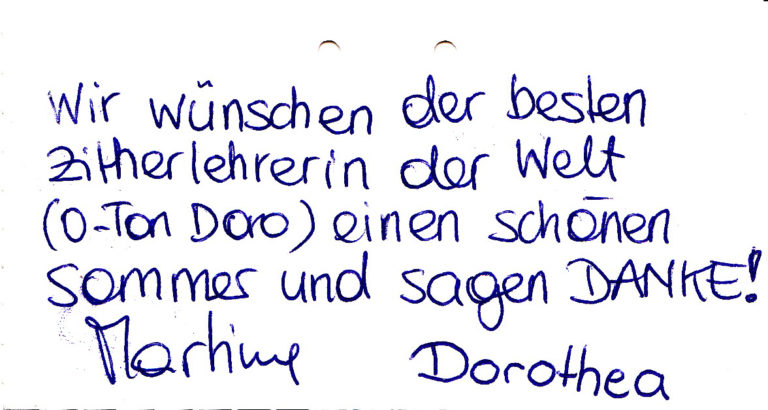 Wir wünschen der besten
Zitherlehrerin der Welt
(O-Ton Doro) einen schönen
Sommer und sagen DANKE!
Martina Dorothea